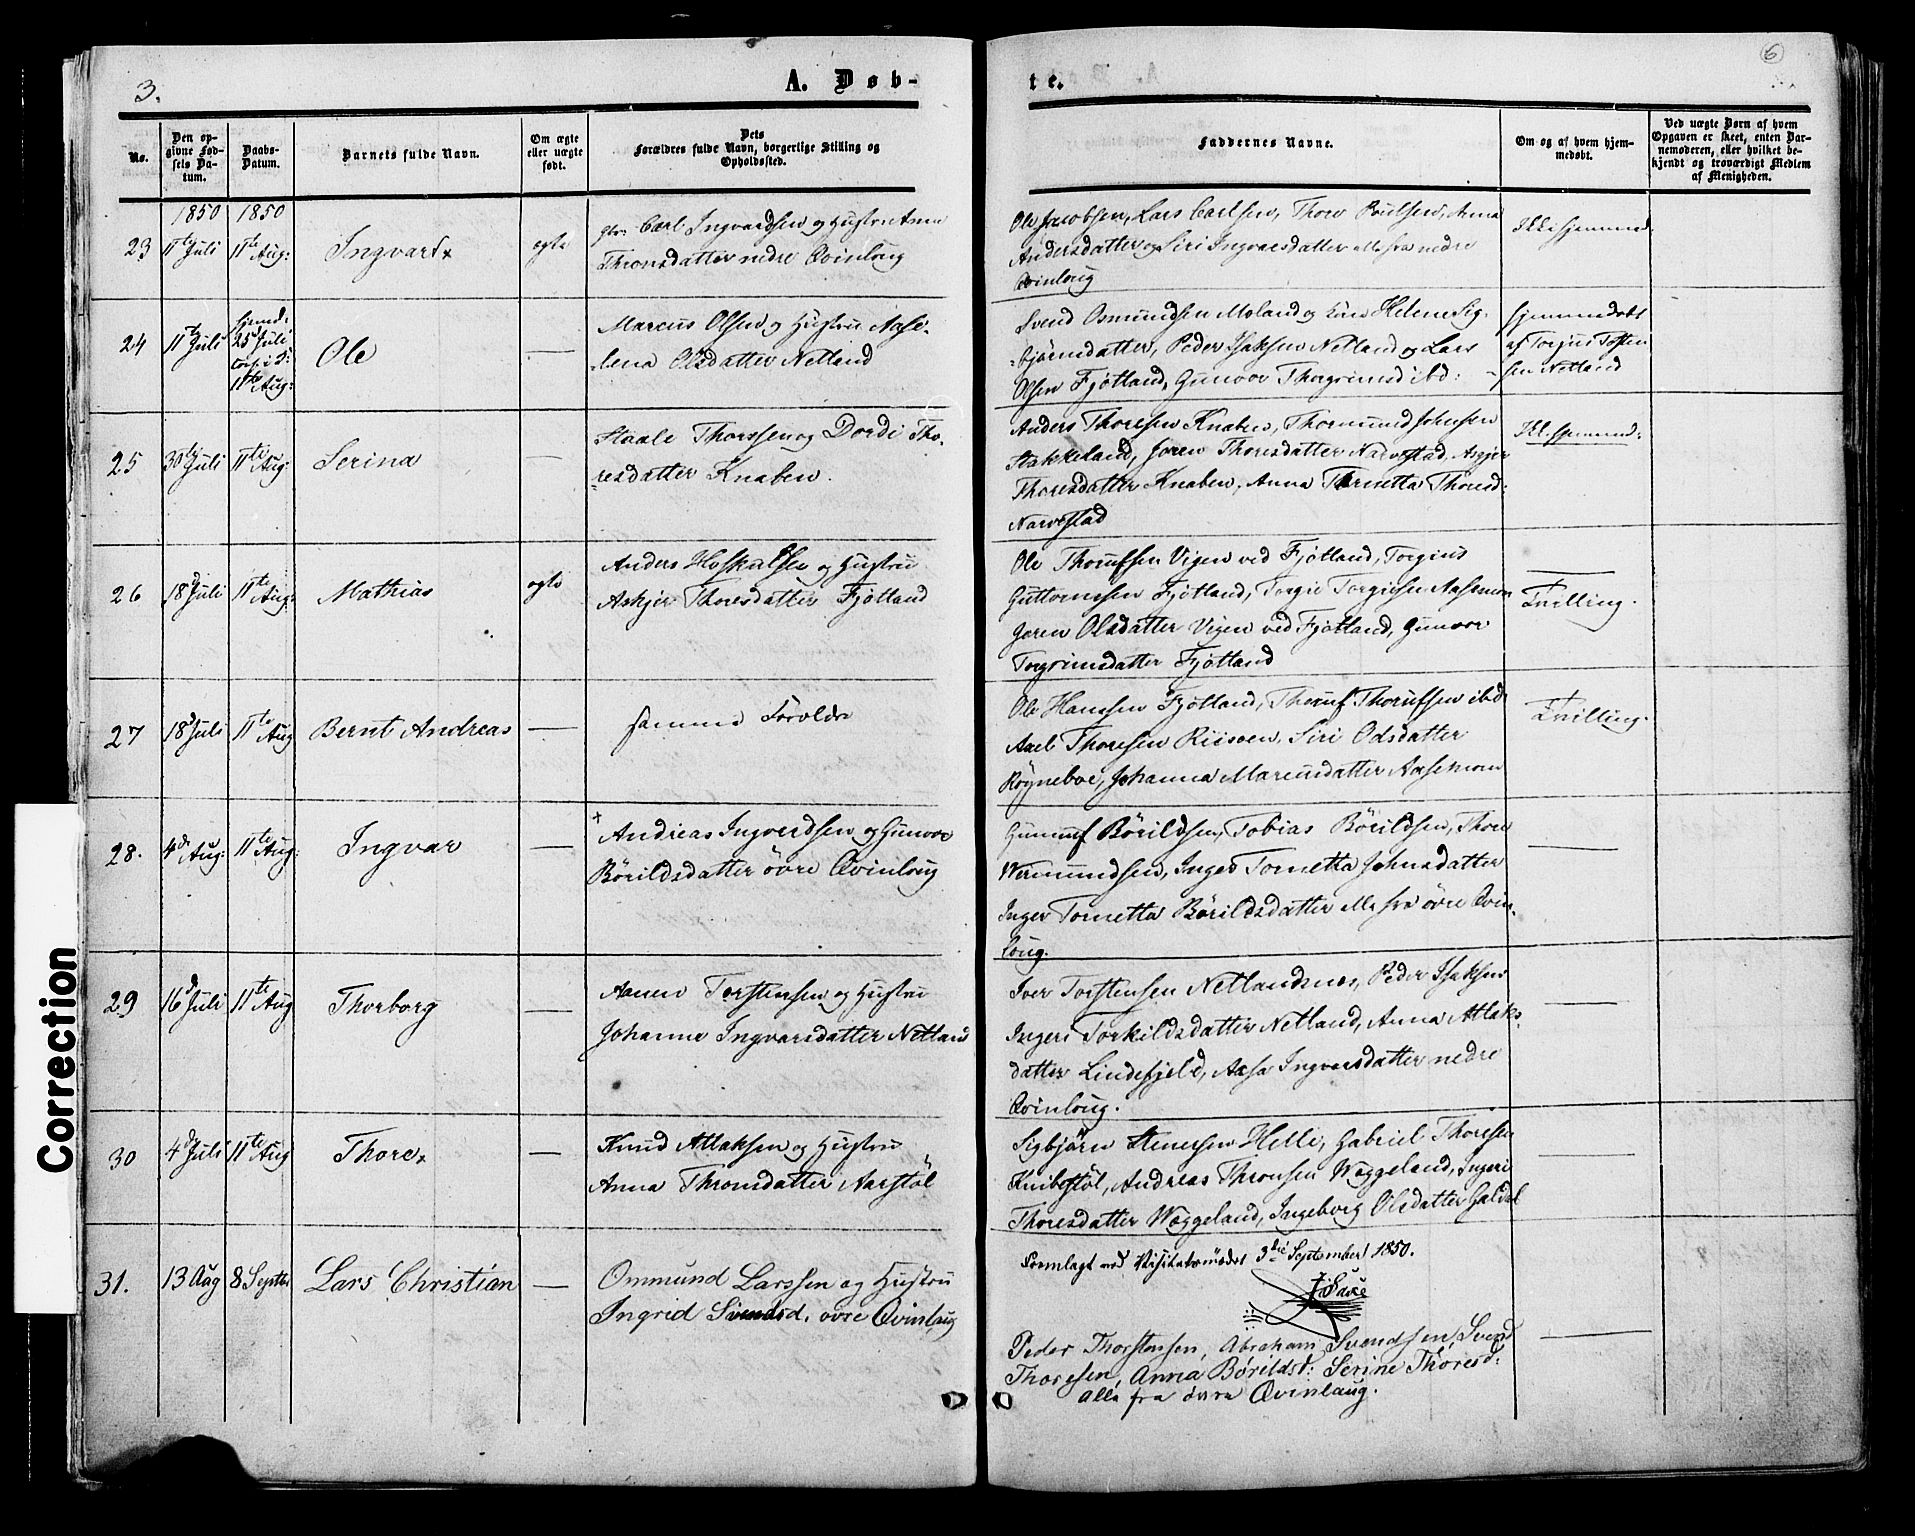 3.
A. Døb-
te.
6
No.
Den op-
givne Fød-
sels Da-
tum.
Daabs-
Datum.
Barnets fulde Navn.
Om ægte
eller uægte
født.
Dets
Forældres fulde Navn, borgerlige Stilling og
Opholdssted.
Faddernes Navne.
Om og af hvem hjem-
medøbt.
Ved uægte Børn af hvem
Opgaven er skeet, enten Bar-
nemoderen, eller hvilket be-
kjendt og troværdigt Medlem
af Menigheden.
1850 1850
23 11te Juli 11te Aug: Ingvart ægte
Carl Ingvardsen og Hustru Anna
Thronsdatter nedre Qvinloug
Ole Jacobsen, Lars Carlsen, Thore Poulsen, Anna
Andersdatter og Siri Ingvarsdatter alle fra nedre
Qvinloug
Ikke hjemmed:
24 11te Juli
hjemd:
25d Juli
11te Aug:
Ole —
Marcus Olsen og Hustru Aase-
lena Olsdatter Netland
Svend Osmundsen Moland og Kone Helene Sig-
bjørnsdatter, Peder Isaksen Netland og Lars
Olsen Fjotland, Gunvor Thorgrimsd ibd:
hjemmedøbt
af Torjus Tosten
sen Netland
25 30te Juli 11te Aug: Serina —
Staale Thorssen og Dordi Tho-
resdatter Knaben.
Anders Thoresen Knaben, Thormund Johnsen
Stakkeland, Joren Thoresdatter Narvestad, Asjer
Thoresdatter Knaben, Anna Torinetta Thoresd:
Narvestad
Ik. hjemmed:
26 18d Juli 11te Aug: Mathias ægte
Anders Hoskalsen og Hustru
Askjer Thoresdatter Fjotland
Ole Thorufsen Vigen ved Fjotland, Torgius
Guttormsen Fjotland, Torgie Torgiesen Aasemoen
Joren Olsdatter Vigen ved Fjotland, Gunvor
Torgrimsdatter Fjotland
Tvilling.
27 18d Juli 11te Aug Bernt Andreas —
samme Forældre
Ole Hanssen Fjotland, Thoruf Thorufsen ibd
Axel Thoresen Riisøen, Siri Odsdatter
Røyneboe, Johanna Marcusdatter Aasemoen
Tvilling.
28. 4d Aug: 11te Aug: Ingvar —
Andreas Ingverdsen og Gunvor
Børildsdatter övre Qvinloug
Gunuf Börildsen, Tobias Börildsen, Thore
Wermundsen, Inger Tornetta Johnsdatter
Inger Tornetta Börildsdatter alle fra övre Qvin-
loug. —
29 16d Juli 11te Aug Thorborg —
Aanen Torstensen og Hustru
Johanne Ingvarsdatter Netland
Iver Torstensen Netlandsnes, Peder Isaksen
Ingeri Torkildsdatter Netland, Anna Atlaks-
datter Lindefjeld, Aasa Ingvarsdatter nedre
Qvinloug. —
30 4d Juli 11te Aug Thore —
Knud Atlaksen og Hustru
Anna Thronsdatter Aarstöl
Sigbjörn Stenersen Helle, Gabriel Thoresen
Knibestöl, Andreas Thronsen Wæggeland, Ingeri
Thoresdatter Wæggeland, Ingeborg Olsdatter Galdal
Fremlagt ved Visitatsmødet 3die September 1850.
31. 13 Aug 8 Septbr Lars Christian —
Ommund Larssen og Hustru
Ingrid Svendsd. øvre Qvinlaug
Peder Thorstensen, Abraham Svendsen, Svend
Thoresen, Anna Børildst: Serine Thoresd:
alle fra øvre Qvinlaug. —
Correction